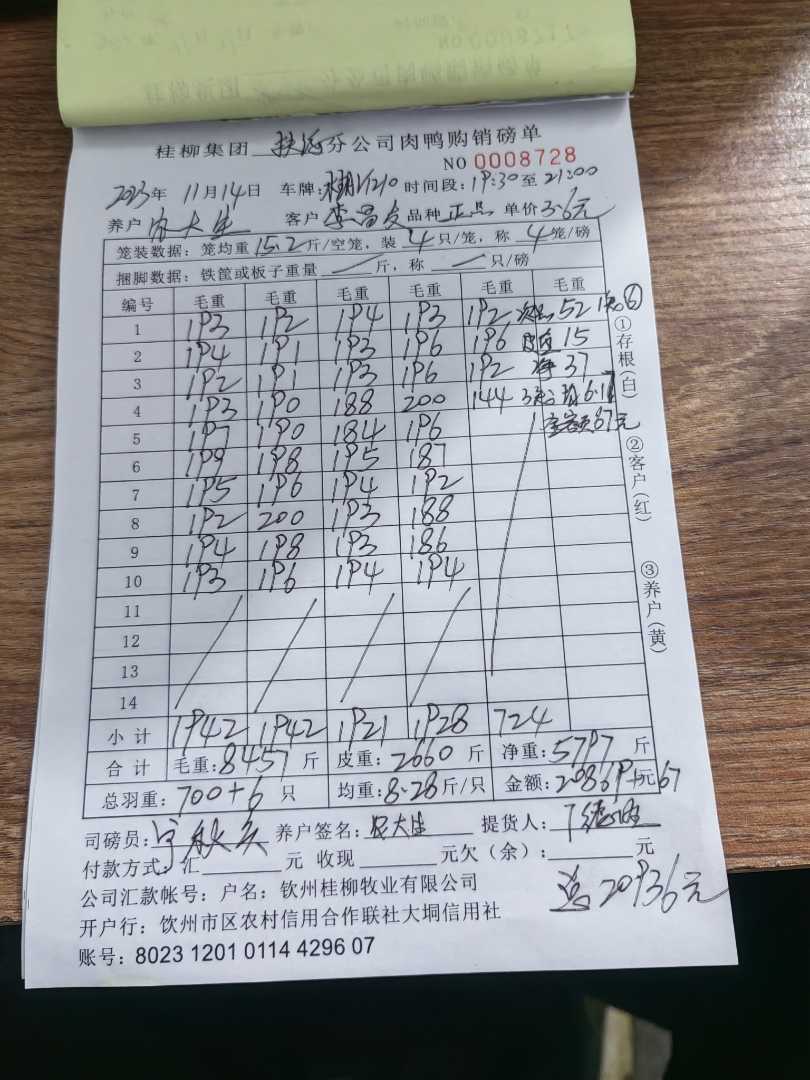 桂柳集团 分公司肉鸭购销磅单
NO 0008728
2023年 11月14日 车牌: 时间段:19:30至21:00
养户 农大生 客户 李昌友 品种 正品 单价3.6元
笼装数据: 笼均重15.2斤/空笼, 装 4 只/笼, 称 4 笼/磅
捆脚数据: 铁筐或板子重量 斤, 称 只/磅
编号 毛重 毛重 毛重 毛重 毛重 毛重
1 193 192 194 193 192 次品 52
2 194 191 193 196 196 皮 15
3 192 191 193 196 192 净 37
4 193 190 188 200 144 均6.17
5 197 190 184 196 金额67元
6 199 198 195 187
7 195 196 194 192
8 192 200 193 188
9 194 198 193 186
10 193 196 194 194
11
12
13
14
小计 1942 1942 1921 1928 724
合计 毛重:8457 斤 皮重:2660 斤 净重:5797 斤
总羽重:700+6 只 均重:8.28斤/只 金额:20869+元67
司磅员: 养户签名:农大生 提货人:
付款方式:汇 元 收现 元欠(余): 元
总20936元
公司汇款帐号: 户名: 钦州桂柳牧业有限公司
开户行: 饮州市区农村信用合作联社大垌信用社
账号: 8023 1201 0114 4296 07
①存根(白) ②客户(红) ③养户(黄)